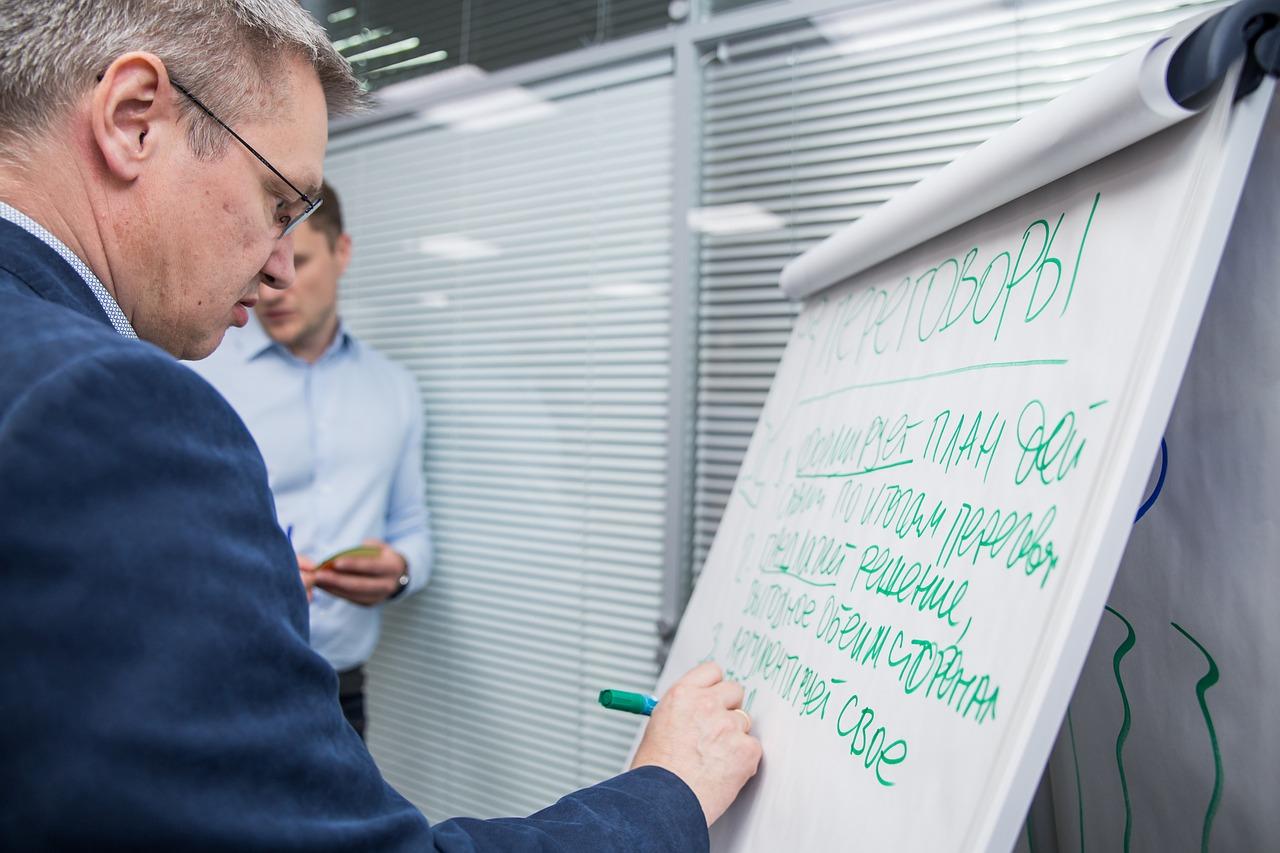 ПЕРЕГОВОРЫ
1. Формирует ПЛАН дей
ствий по итогам переговор
2. предлагает решение,
выгодное обеим сторонам
3. Аргументирует свое